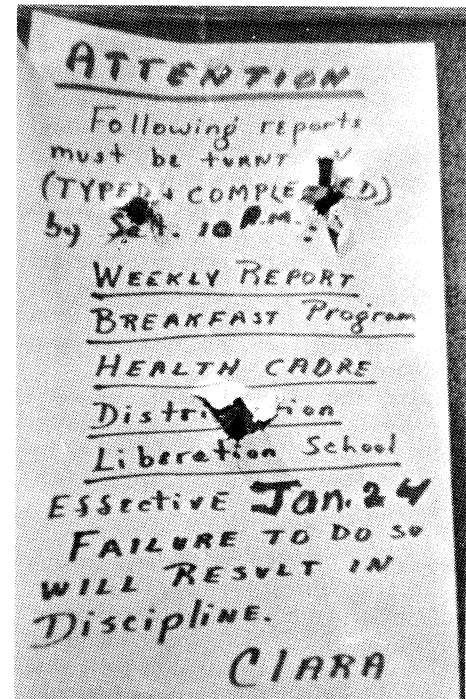 ATTENTION
Following reports
must be turnt
(TYPED + COMPLETED)
by Sat. 10 P.M.:
WEEKLY REPORT
BREAKFAST Program
HEALTH CADRE
Distribution
Liberation School
Effective Jan. 24
FAILURE TO DO SO
WILL RESULT IN
Discipline.
CLARA